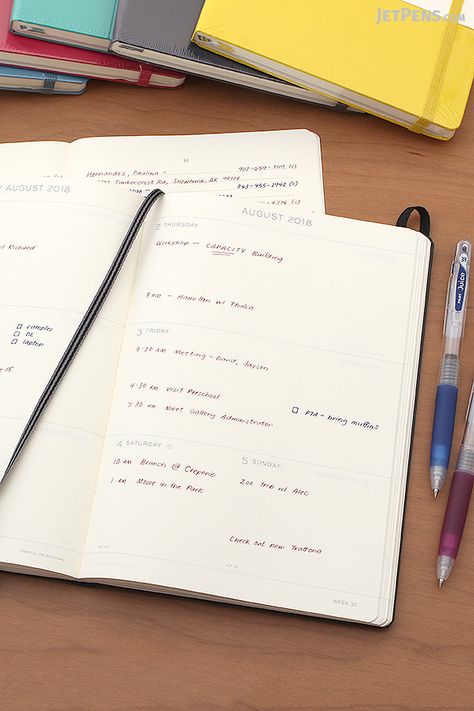 JetPens.com
H
Hernandez, Paulina -
Timbercrest Rd, Snowbank, AK
AUGUST 2018
AUGUST 2018
Richard
samples
OL
laptop
2 THURSDAY
Workshop - CAPACITY Building
8 PM - Hamilton w/ Thalia
3 FRIDAY
9:30 AM Meeting - David, Jayson
4:30 PM Visit Preschool
7:30 PM Meet Gallery Administrator
PTA - bring muffins
4 SATURDAY
10 AM Brunch @ Crêperie
1 PM Movie in the Park
5 SUNDAY
Zoo trip w/ Alec
Check out new Trattoria
WEEK 31
PILOT Juice